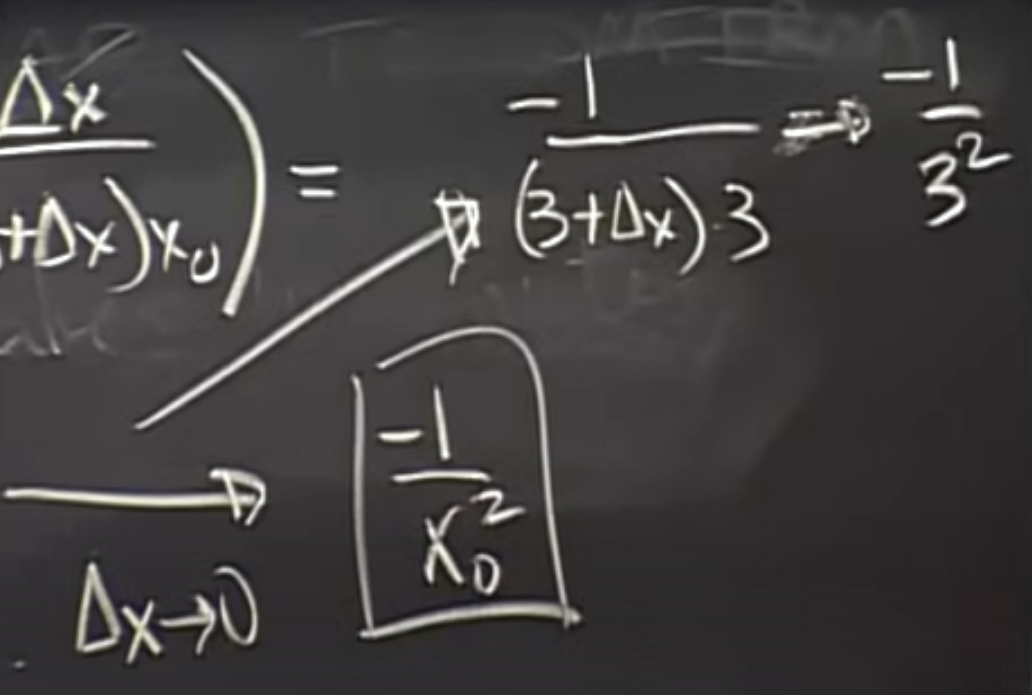 Δx/(+Δx)x₀) = -1/((3+Δx)·3) → -1/3²
→ -1/x₀²
Δx→0